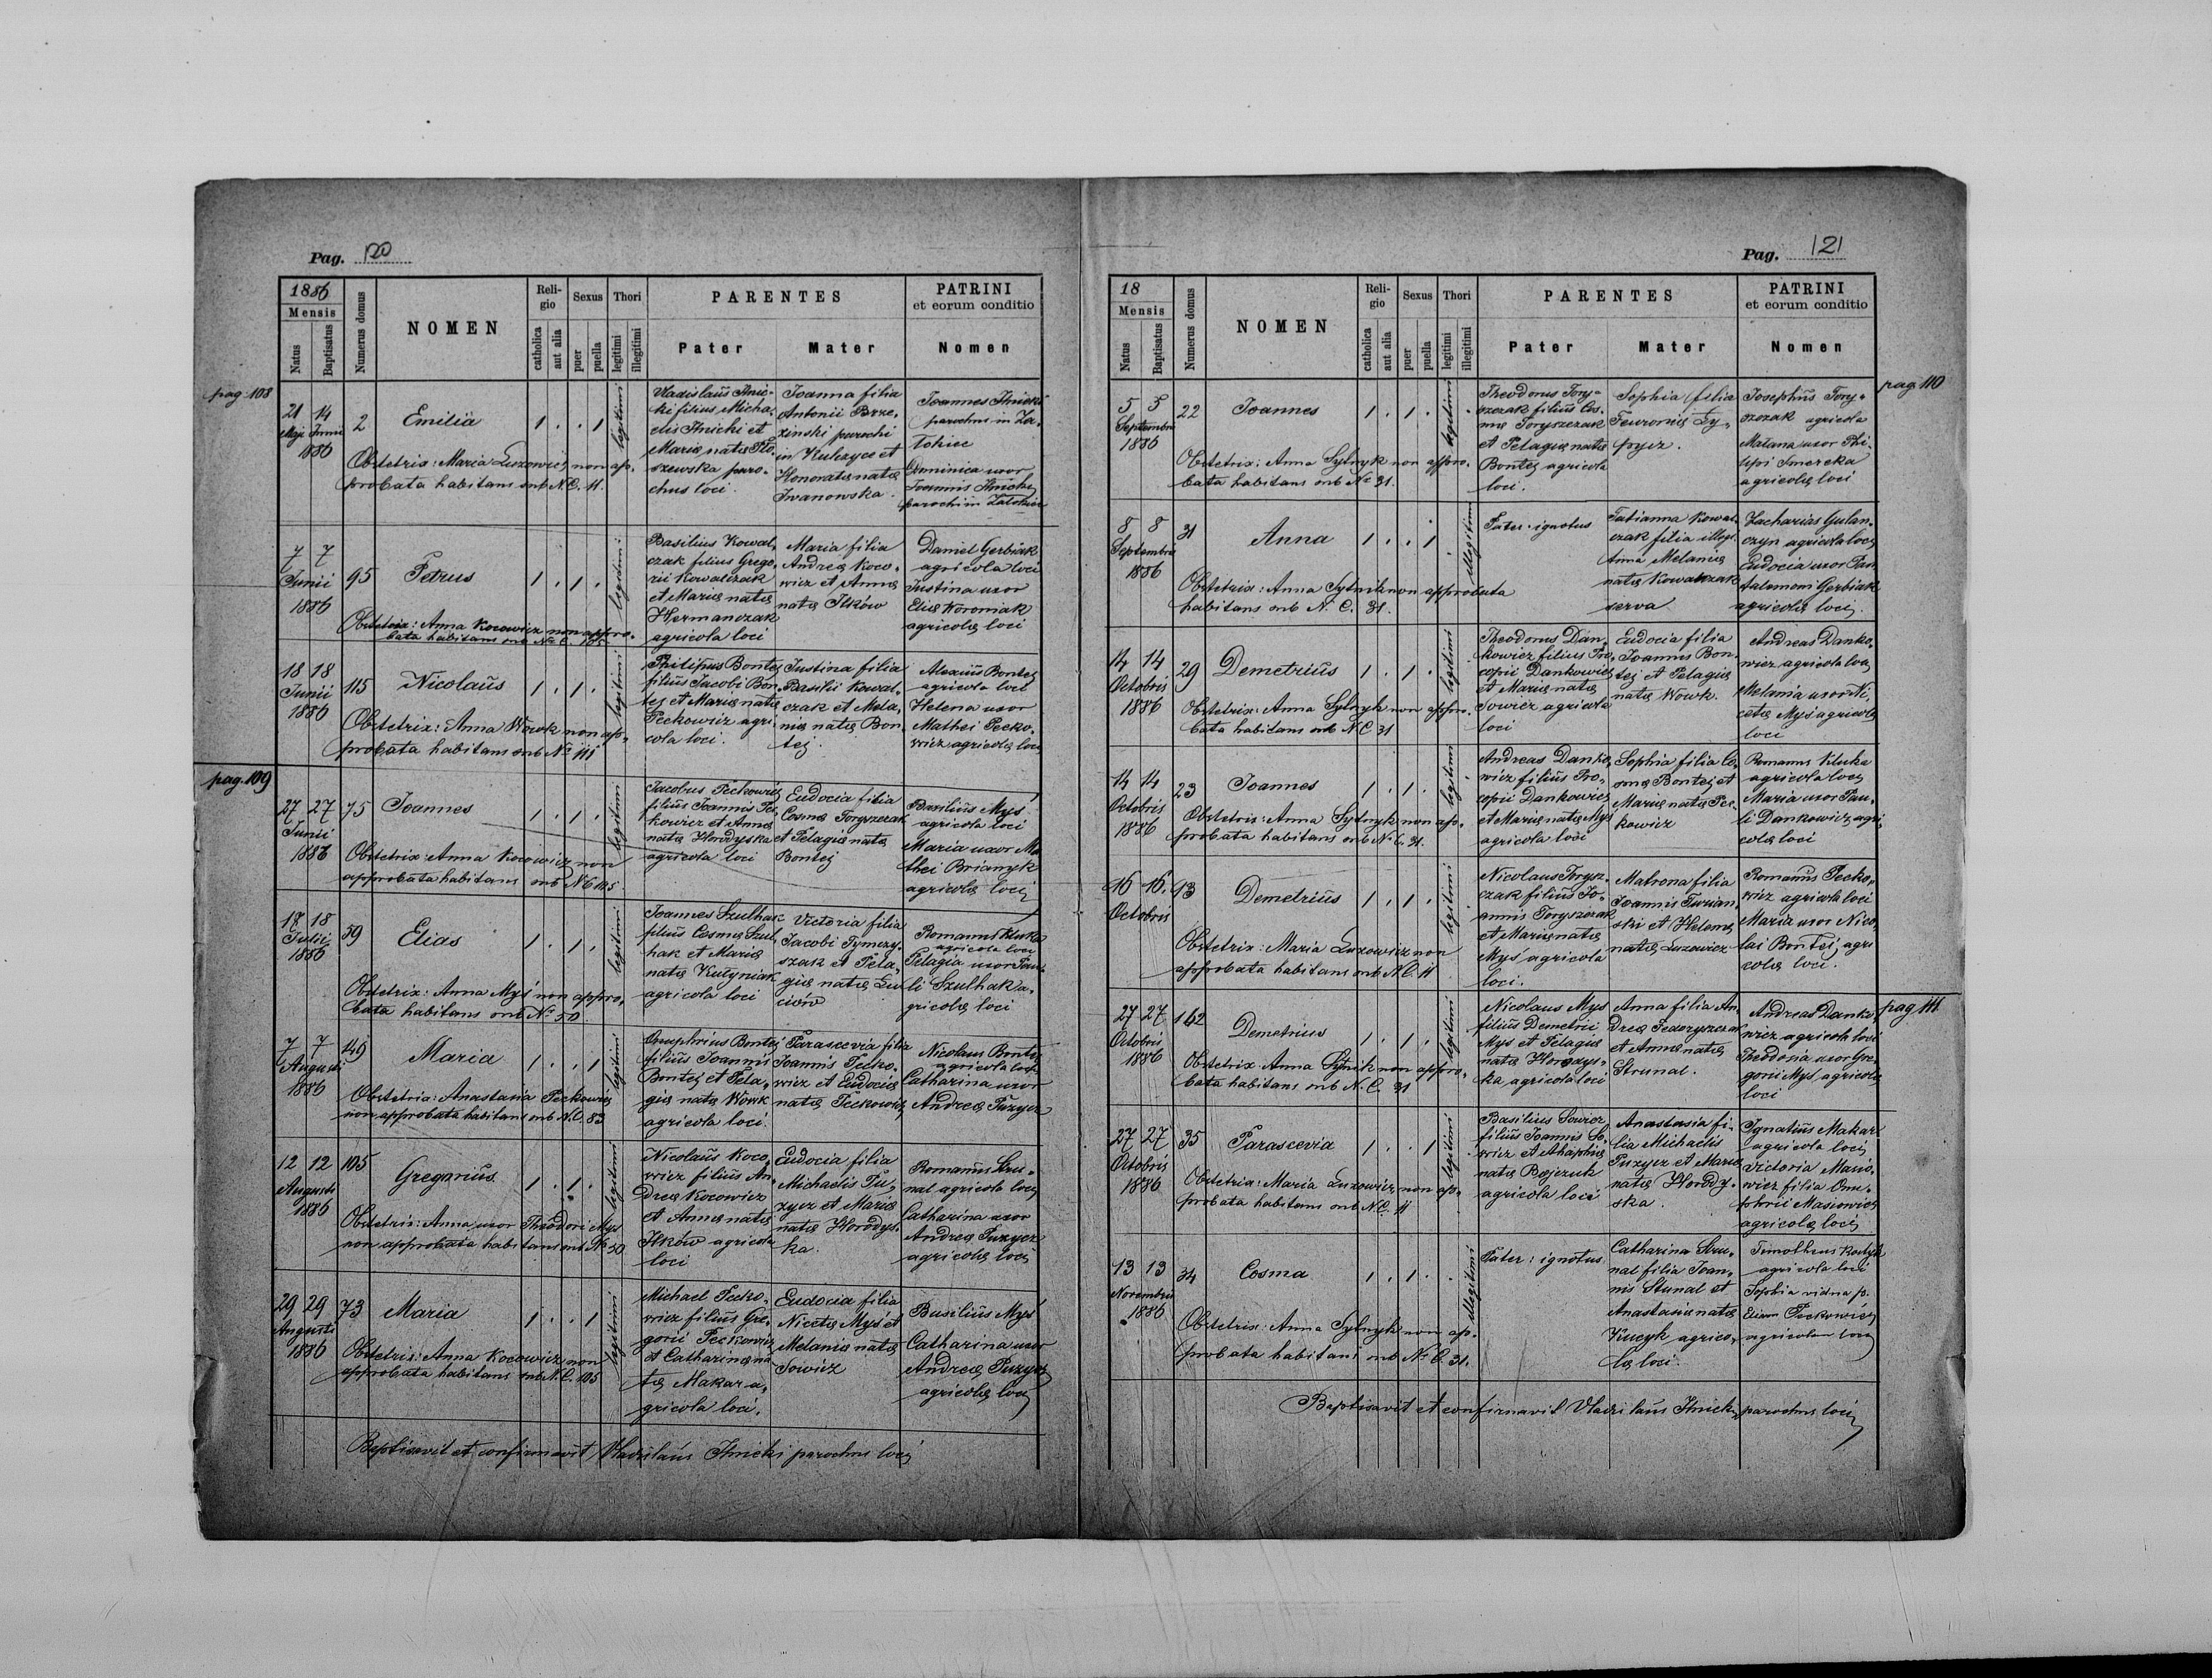 Pag. 120
1886
Mensis
Natus
Baptisatus
Numerus domus
NOMEN
Religio
catholica
aut alia
Sexus
puer
puella
Thori
legitimi
illegitimi
PARENTES
Pater
Mater
PATRINI
et eorum conditio
Nomen
pag. 108
21 14
Maji Junii
1886
2
Emilia
1 . . 1
legitimi
Obstetrix: Maria Luzowicz non ap-
probata habitans sub N.C. 11.
Vladislaus Ilnic-
ki filius Micha-
elis Ilnicki et
Mariæ natæ
parochus loci.
Joanna filia
Antonii Brze-
zinski parochi
in Kulczyce et
Honoratæ natæ
Iwanowska.
Joannes Ilnicki
parochus in Za-
łokiec
Dominica uxor
Joannis Ilnicki
parochi in Załokiec
7 7
Junii
1886
95
Petrus
1 . 1 .
legitimi
Obstetrix: Anna Kocowicz non appro-
bata habitans sub N.C. 105
Basilius Kowal-
czak filius Grego-
rii Kowalczak
et Mariæ natæ
Hermanczak
agricola loci
Maria filia
Andreæ Koco-
wicz et Annæ
natæ Ilków
Daniel Gerbiak
agricola loci
Justina uxor
Eliæ Woroniak
agricolæ loci
18 18
Junii
1886
115
Nicolaus
1 . 1 .
legitimi
Obstetrix: Anna Wowk non ap-
probata habitans sub No 111
Philipus Bontej
filius Jacobi Bon-
tej et Mariæ natæ
Peckowicz agri-
cola loci.
Justina filia
Basilii Kowal-
czak et Mela-
niæ natæ Bon-
tej.
Alexius Bontej
agricola loci
Helena uxor
Mathei Pecko-
wicz agricolæ loci
pag. 109
27 27
Junii
1886
75
Joannes
1 . 1 .
legitimi
Obstetrix: Anna Kocowicz non
approbata habitans sub N.C 105
Jacobus Peckowicz
filius Joannis Pec-
kowicz et Annæ
natæ Horodyska
agricola loci
Eudocia filia
Cosmæ Toryszczak
et Pelagiæ natæ
Bontej
Basilius Myś
agricola loci
Maria uxor Ma-
thei Brianyk
agricolæ loci
17 18
Julii
1886
59
Elias
1 . 1 .
legitimi
Obstetrix: Anna Myś non appro-
bata habitans sub No 50.
Joannes Szulhak
filius Cosmæ Szul-
hak et Mariæ
natæ
agricola loci
Victoria filia
Jacobi Tymczy-
szak et Pela-
giæ natæ Lu-
ciów
Romanus Kluka
agricola loci
Pelagia uxor Pau-
li Szulhak a-
gricolæ loci
7 7
Augusti
1886
149
Maria
1 . . 1
legitimi
Obstetrix: Anastasia Peckowicz
non approbata habitans sub N.C. 83
Onuphrius Bontej
filius Joannis
Bontej et Pela-
giæ natæ Wowk
agricola loci.
Parascevia filia
Joannis Pecko-
wicz et Eudociæ
natæ Peckowicz
Nicolaus Bontej
agricola loci
Catharina uxor
Andreæ Puzycz
12 12
Augusti
1886
105
Gregorius
1 . 1 .
legitimi
Obstetrix: Anna uxor Theodori Myś
non approbata habitans sub No 50
Nicolaus Koco-
wicz filius An-
dreæ Kocowicz
et Annæ natæ
Ilków agricola
loci
Eudocia filia
Michaelis Pu-
zycz et Mariæ
natæ Horodys-
ka.
Romanus Stru-
nal agricola loci
Catharina uxor
Andreæ Puzycz
agricolæ loci
29 29
Augusti
1886
73
Maria
1 . . 1
legitimi
Obstetrix: Anna Kocowicz non
approbata habitans sub N.C. 105
Michael Pecko-
wicz filius Gre-
gorii Peckowicz
et Catharinæ na-
tæ Makar a-
gricola loci.
Eudocia filia
Nicetæ Myś et
Melaniæ natæ
Sowicz
Basilius Myś
Catharina uxor
Andreæ Puzycz
agricolæ loci
Baptisavit et confirmavit Vladislaus Ilnicki parochus loci
Pag. 121
18
Mensis
Natus
Baptisatus
Numerus domus
NOMEN
Religio
catholica
aut alia
Sexus
puer
puella
Thori
legitimi
illegitimi
PARENTES
Pater
Mater
PATRINI
et eorum conditio
Nomen
pag 110
5 5
Septembris
1886
22
Joannes
1 . 1 .
legitimi
Obstetrix: Anna Sytnyk non appro-
bata habitans sub No 31.
Theodorus Tory-
szczak filius Cos-
mæ Toryszczak
et Pelagiæ natæ
Bontej agricola
loci.
Sophia filia
Fevroniæ
Josephus Tory-
szczak agricola
Malana uxor Phi-
lipi Smereka
agricolæ loci
8 8
Septembris
1886
31
Anna
1 . . 1
illegitimi
Obstetrix: Anna Sytnik non approbata
habitans sub N. C. 31.
Pater: ignotus
Tatianna Kowal-
czak filia illegi-
tima Melaniæ
natæ Kowalczak
serva
Zacharias Gulan-
czyn agricola loci
Eudocia uxor Pan-
talemoni Gerbiak
agricolæ loci.
14 14
Octobris
1886
29
Demetrius
1 . 1 .
legitimi
Obstetrix: Anna Sytnyk non appro-
bata habitans sub N.C 31
Theodorus Dan-
kowicz filius Pro-
copii Dankowicz
et Mariæ natæ
Sowicz agricola
loci
Eudocia filia
Joannis Bon-
tej et Pelagiæ
natæ Wowk.
Andreas Danko-
wicz agricola loci
Melania uxor Ni-
cetæ Myś agricolæ
loci
14 14
Octobris
1886
23
Joannes
1 . 1 .
legitimi
Obstetrix: Anna Sytnyk non ap-
probata habitans sub N.C. 31.
Andreas Danko-
wicz filius Pro-
copii Dankowicz
et Mariæ natæ Myś
agricola loci
Sophia filia Co-
smæ Bontej et
Mariæ natæ Pec-
kowicz
Romanus Kluka
agricola loci
Maria uxor Pau-
li Dankowicz agri-
colæ loci
16 16.
Octobris
13
Demetrius
1 . 1 .
legitimi
Obstetrix: Maria Luzowicz non
approbata habitans sub N.C. 11
Nicolaus Torysz-
czak filius Jo-
annis Toryszczak
et Mariæ natæ
Myś agricola
loci.
Matrona filia
Joannis Turian-
ski et Helenæ
natæ Luzowicz
Romanus Pecko-
wicz agricola loci
Maria uxor Nico-
lai Bontej agri-
colæ loci.
pag 111.
27 27
Octobris
1886
142
Demetrius
1 . 1 .
legitimi
Obstetrix Anna Sytnik non appro-
bata habitans sub N. C. 31
Nicolaus Myś
filius Demetrii
Myś et Pelagiæ
natæ Horodys-
ka agricola loci
Anna filia An-
dreæ Fedoryszczak
et Annæ natæ
Strunal.
Andreas Danko-
wicz agricola loci
Theodosia uxor Gre-
gorii Myś agricolæ
loci
27 27
Octobris
1886
35
Parascevia
1 . . 1
legitimi
Obstetrix: Maria Luzowicz non ap-
probata habitans sub N.C. 11
Basilius Sowicz
filius Joannis So-
wicz et Ahaphiæ
natæ Bojczuk
agricola loci
Anastasia fi-
lia Michaelis
Puzycz et Mariæ
natæ Horody-
ska.
Ignatius Makar
agricola loci
Victoria Masio-
wicz filia Onu-
phrii Masiowicz
agricolæ loci
13 13
Novembris
1886
34
Cosma
1 . 1 .
illegitimi
Obstetrix: Anna Sytnyk non ap-
probata habitans sub N.C. 31.
Pater: ignotus
Catharina Stru-
nal filia Joan-
nis Stunal et
Anastasiæ natæ
Kucyk agrico-
læ loci.
Timotheus
agricola loci
Sophia vidua p.
Eliam Peckowicz
agricolam loci
Baptisavit et confirmavit Vladislaus Ilnicki parochus loci